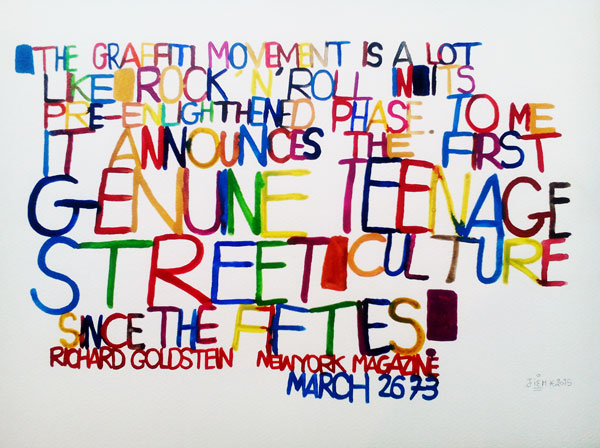 THE GRAFFITI MOVEMENT IS A LOT
LIKE ROCK 'N' ROLL IN ITS
PRE-ENLIGHTHENED PHASE. TO ME
IT ANNOUNCES THE FIRST
GENUINE TEENAGE
STREET CULTURE
SINCE THE FIFTIES
RICHARD GOLDSTEIN NEWYORK MAGAZINE
MARCH 26 73